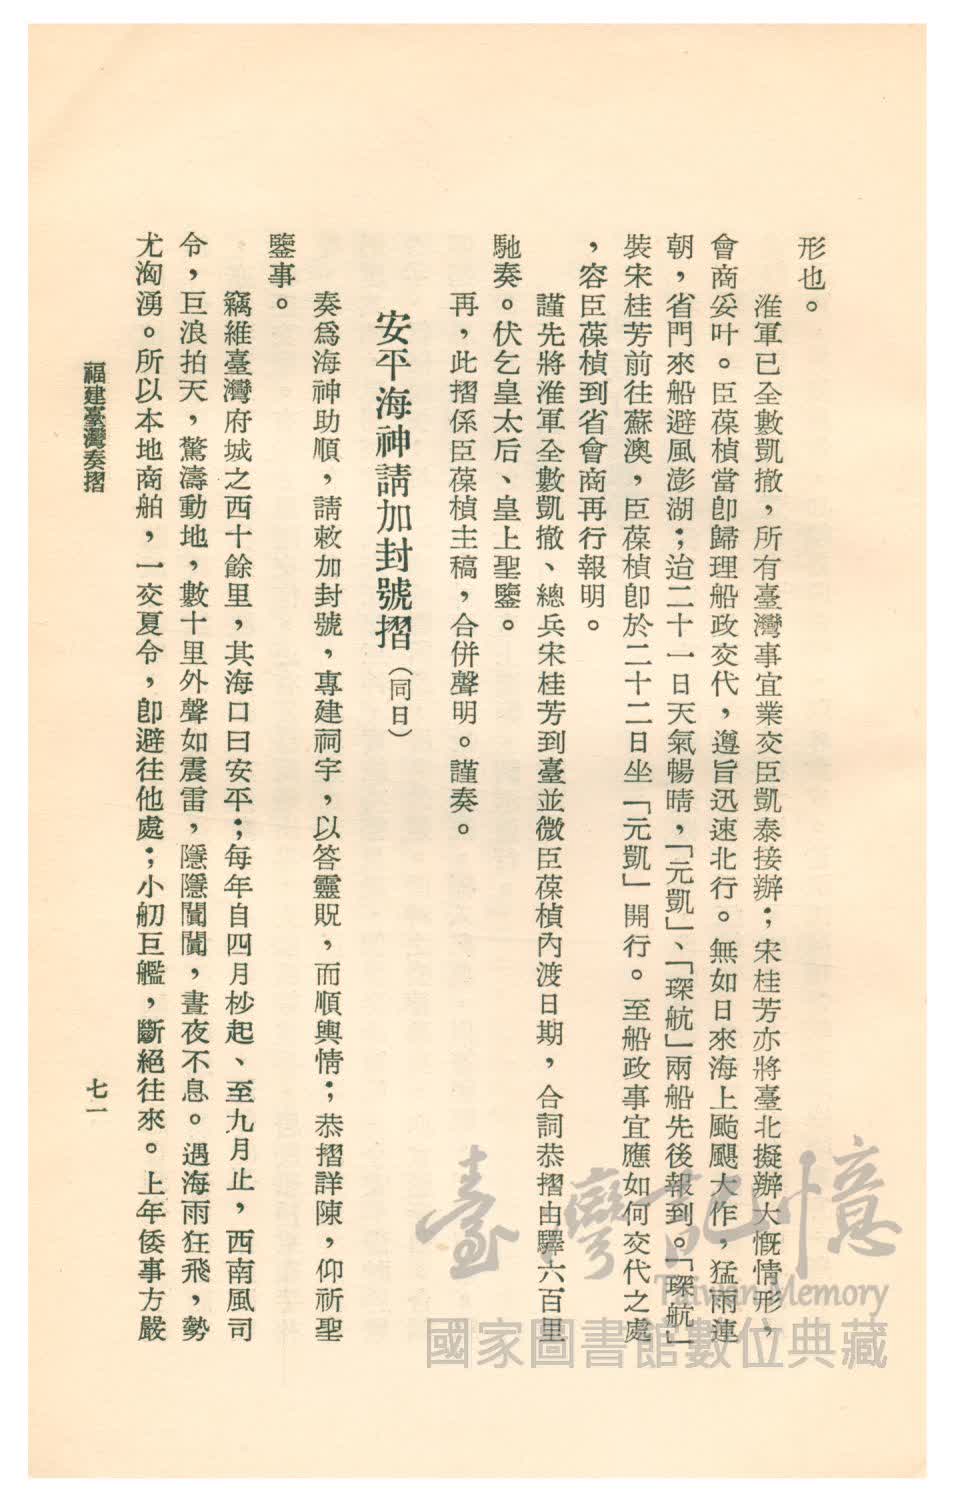 形也。
淮軍已全數凱撤，所有臺灣事宜業交臣凱泰接辦；宋桂芳亦將臺北擬辦大慨情形，
會商妥叶。臣葆楨當卽歸理船政交代，遵旨迅速北行。無如日來海上颱颶大作，猛雨連
朝，省門來船避風澎湖；迨二十一日天氣暢晴，「元凱」、「琛航」兩船先後報到。「琛航」
裝宋桂芳前往蘇澳，臣葆楨卽於二十二日坐「元凱」開行。至船政事宜應如何交代之處
，容臣葆楨到省會商再行報明。
謹先將淮軍全數凱撤、總兵宋桂芳到臺並微臣葆楨內渡日期，合詞恭摺由驛六百里
馳奏。伏乞皇太后、皇上聖鑒。
再，此摺係臣葆楨主稿，合併聲明。謹奏。
安平海神請加封號摺（同日）
奏爲海神助順，請敕加封號，專建祠宇，以答靈貺，而順輿情；恭摺詳陳，仰祈聖
鑒事。
竊維臺灣府城之西十餘里，其海口曰安平；每年自四月杪起、至九月止，西南風司
令，巨浪拍天，驚濤動地，數十里外聲如震雷，隱隱闐闐，晝夜不息。遇海雨狂飛，勢
尤洶湧。所以本地商舶，一交夏令，卽避往他處；小舠巨艦，斷絕往來。上年倭事方嚴
福建臺灣奏摺
七一
臺灣記憶
Taiwan Memory
國家圖書館數位典藏